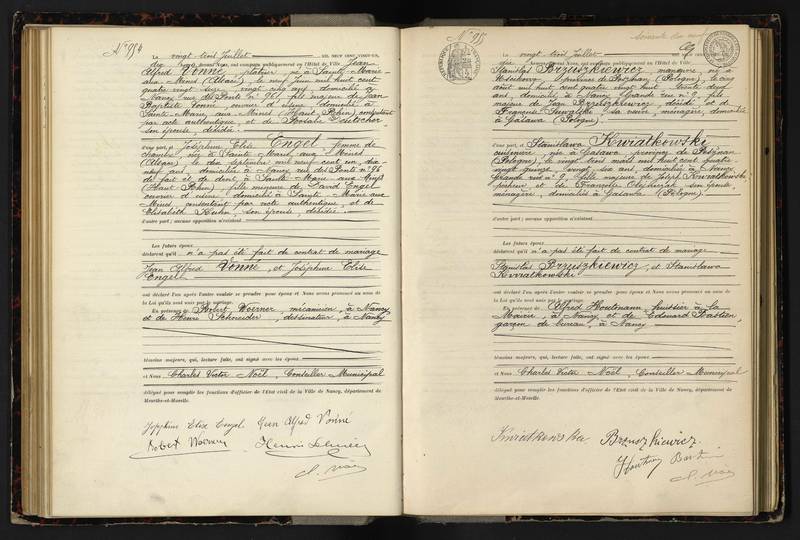 N° 954
Le vingt trois Juillet mil neuf cent vingt-un,
devant Nous, ont comparu publiquement en l'Hôtel de Ville Jean
Alfred Vonné, platrier, né à Sainte-Marie-
aux-Mines (Alsace), le neuf juin mil huit cent
quatre vingt seize, vingt cinq ans, domicilié à
Nancy, rue des Ponts n° fils majeur de Jean
Baptiste Vonné, ouvrier d'usine, domicilié à
Sainte-Marie-aux-Mines (Haut-Rhin), consentant
par acte authentique, et de Rosalie
son épouse, décédée.
d'une part, et Joséphine Elise Engel, femme de
chambre, née à Sainte-Marie-aux-Mines
(Alsace), le dix septembre mil neuf cent un, dix-
neuf ans, domiciliée à Nancy, rue des Ponts n°
de fait et de droit à Sainte-Marie-aux-Mines
(Haut-Rhin), fille mineure de David Engel
ouvrier d'usine, domicilié à Sainte-Marie-aux-
Mines, consentant par acte authentique, et de
Elisabeth Kuhn, son épouse, décédée.
d'autre part ; aucune opposition n'existant
Les futurs époux
déclarent qu'il n'a pas été fait de contrat de mariage
Jean Alfred Vonné, et Joséphine Elise
Engel
ont déclaré l'un après l'autre vouloir se prendre pour époux et Nous avons prononcé au nom de
la Loi qu'ils sont unis par le mariage.
En présence de Robert Woerner, mécanicien, à Nancy
et de Henri Schneider, dessinateur, à Nancy
témoins majeurs, qui, lecture faite, ont signé avec les époux
et Nous Charles Victor Noël, Conseiller Municipal
délégué pour remplir les fonctions d'officier de l'Etat civil de la Ville de Nancy, département de
Meurthe-et-Moselle.
Joséphine Elise Engel Jean Alfred Vonné
Robert Woerner Henri
N° 955
soixante dix neuf
Le vingt trois Juillet
devant Nous, ont comparu publiquement en l'Hôtel de Ville
Stanislas Brzuszkiewicz, manœuvre, né à
province de Poznan (Pologne), le cinq
août mil huit cent quatre vingt huit, trente deux
ans, domicilié à Nancy, Grande rue n° 2, fils
majeur de Jean Brzuszkiewicz, décédé, et de
Françoise sa veuve, ménagère, domiciliée
à Gasawa (Pologne).
d'une part, et Stanislawa Kwiatkowski
née à Gasawa, province de Poznan
(Pologne), le vingt trois mars mil huit cent quatre
vingt quinze, vingt six ans, domiciliée à Nancy,
Grande rue n° 2, fille majeure de Joseph Kwiatkowski,
et de Françoise son épouse,
ménagère, domiciliés à Gasawa (Pologne).
d'autre part ; aucune opposition n'existant
Les futurs époux
déclarent qu'il n'a pas été fait de contrat de mariage
Stanislas Brzuszkiewicz, et Stanislawa
Kwiatkowski
ont déclaré l'un après l'autre vouloir se prendre pour époux et Nous avons prononcé au nom de
la Loi qu'ils sont unis par le mariage.
En présence de Alfred Houtmann, huissier à la
Mairie, à Nancy, et de Edouard Bastien,
garçon de bureau, à Nancy
témoins majeurs, qui, lecture faite, ont signé avec les époux
et Nous Charles Victor Noël, Conseiller Municipal
délégué pour remplir les fonctions d'officier de l'Etat civil de la Ville de Nancy, département de
Meurthe-et-Moselle.
Kwiatkowska Brzuszkiewicz